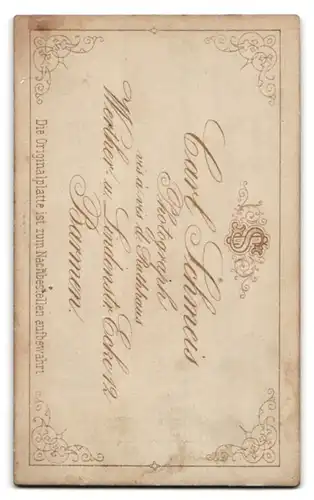 CS
Carl Schmeis
Photograph
vis à vis d. Rathhaus
Werther u. Lindenstr. Ecke 12
Barmen.
Die Originalplatte ist zum Nachbestellen aufbewahrt